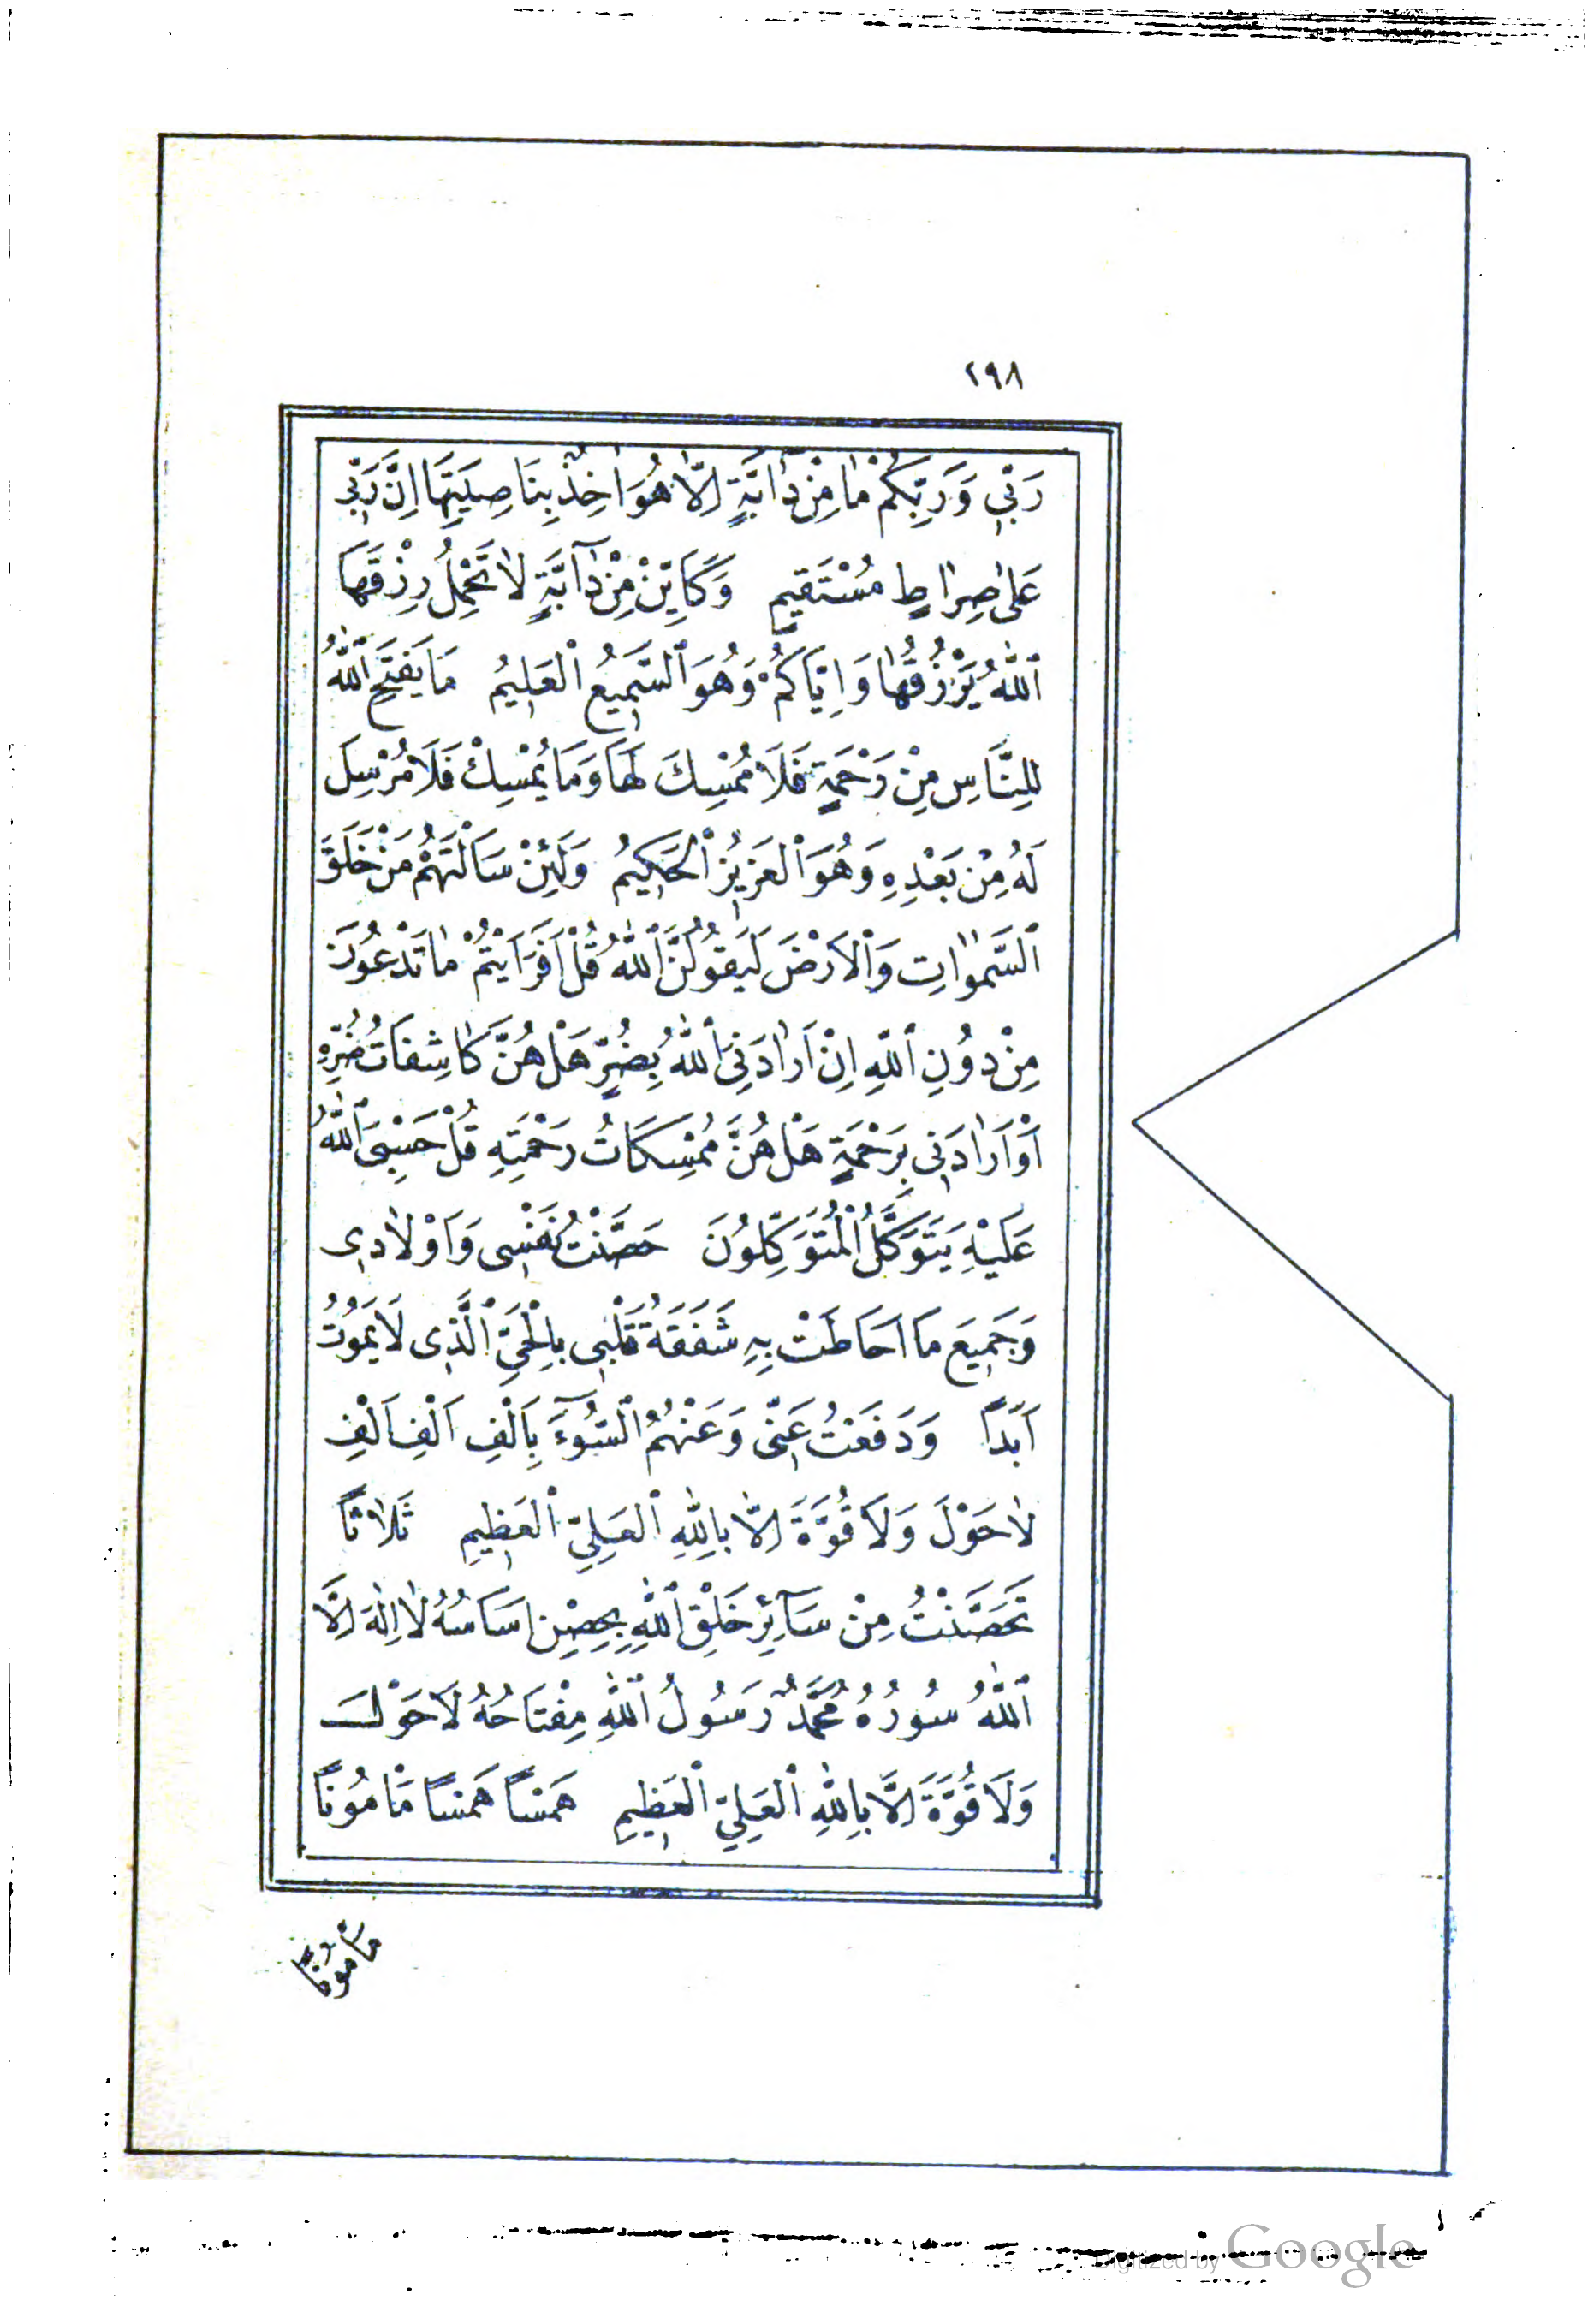 ٢٩٨
رَبِّي وَرَبِّكُمْ مٰا مِنْ دٰابَّةٍ اِلّٰا هُوَ اٰخِذٌ بِنَاصِيَتِهَا اِنَّ رَبِّي
عَلىٰ صِرٰاطٍ مُسْتَقِيمٍ وَكَاَيِّنْ مِنْ دٰآبَّةٍ لٰا تَحْمِلُ رِزْقَهَا
ٱللّٰهُ يَرْزُقُهٰا وَاِيّٰاكُمْ وَهُوَ ٱلسَّمِيعُ ٱلْعَلِيمُ مَا يَفْتَحِ ٱللّٰهُ
لِلنَّاسِ مِنْ رَحْمَةٍ فَلَا مُمْسِكَ لَهَا وَمَا يُمْسِكْ فَلَا مُرْسِلَ
لَهُ مِنْ بَعْدِهِ وَهُوَ ٱلْعَزِيزُ ٱلْحَكِيمُ وَلَئِنْ سَاَلْتَهُمْ مَنْ خَلَقَ
ٱلسَّمٰوٰاتِ وَٱلْاَرْضَ لَيَقُولُنَّ ٱللّٰهُ قُلْ اَفَرَاَيْتُمْ مٰا تَدْعُونَ
مِنْ دُونِ ٱللّٰهِ اِنْ اَرٰادَنِيَ ٱللّٰهُ بِضُرٍّ هَلْ هُنَّ كٰاشِفَاتُ ضُرِّهِ
اَوْ اَرٰادَنِي بِرَحْمَةٍ هَلْ هُنَّ مُمْسِكَاتُ رَحْمَتِهِ قُلْ حَسْبِيَ ٱللّٰهُ
عَلَيْهِ يَتَوَكَّلُ ٱلْمُتَوَكِّلُونَ حَصَّنْتُ نَفْسِي وَاَوْلٰادِي
وَجَمِيعَ مَا اَحَاطَتْ بِهِ شَفَقَةُ قَلْبِي بِالْحَيِّ ٱلَّذِي لَا يَمُوتُ
اَبَدًا وَدَفَعْتُ عَنِّي وَعَنْهُمُ ٱلسُّوٓءَ بِاَلْفِ اَلْفِ اَلْفِ
لٰا حَوْلَ وَلَا قُوَّةَ اِلّٰا بِاللّٰهِ ٱلْعَلِيِّ ٱلْعَظِيمِ ثَلٰاثًا
تَحَصَّنْتُ مِنْ سَآئِرِ خَلْقِ ٱللّٰهِ بِحِصْنٍ اَسَاسُهُ لٰا اِلٰهَ اِلَّا
ٱللّٰهُ سُورُهُ مُحَمَّدٌ رَسُولُ ٱللّٰهِ مِفْتَاحُهُ لَا حَوْلَ
وَلَا قُوَّةَ اِلَّا بِاللّٰهِ ٱلْعَلِيِّ ٱلْعَظِيمِ هَمْسًا هَمْسًا مَاْمُونًا
مَاْمُونًا
Digitized by Google